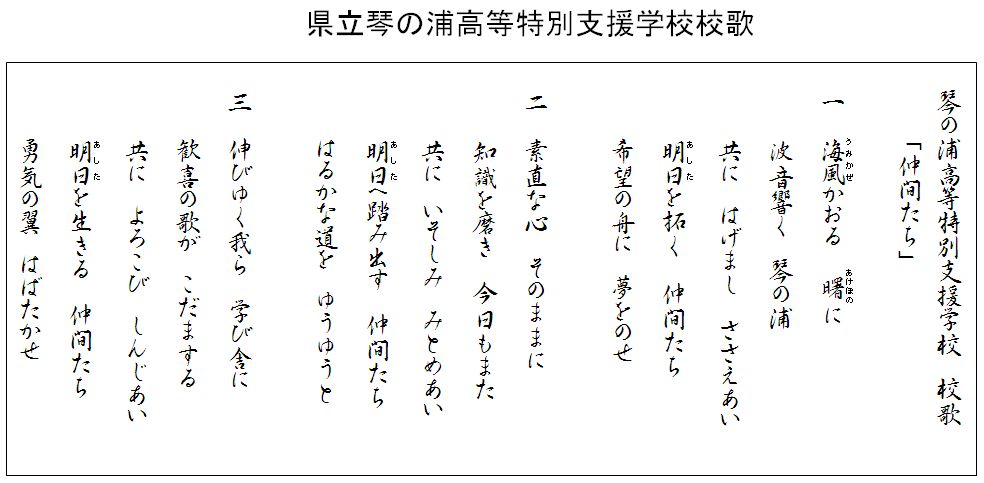 県立琴の浦高等特別支援学校校歌
琴の浦高等特別支援学校　校歌
「仲間たち」
一　海風かおる　曙に
うみかぜ
あけぼの
波音響く　琴の浦
共に　はげまし　ささえあい
明日を拓く　仲間たち
あした
希望の舟に　夢をのせ
二　素直な心　そのままに
知識を磨き　今日もまた
共に　いそしみ　みとめあい
明日へ踏み出す　仲間たち
あした
はるかな道を　ゆうゆうと
三　伸びゆく我ら　学び舎に
歓喜の歌が　こだまする
共に　よろこび　しんじあい
明日を生きる　仲間たち
あした
勇気の翼　はばたかせ